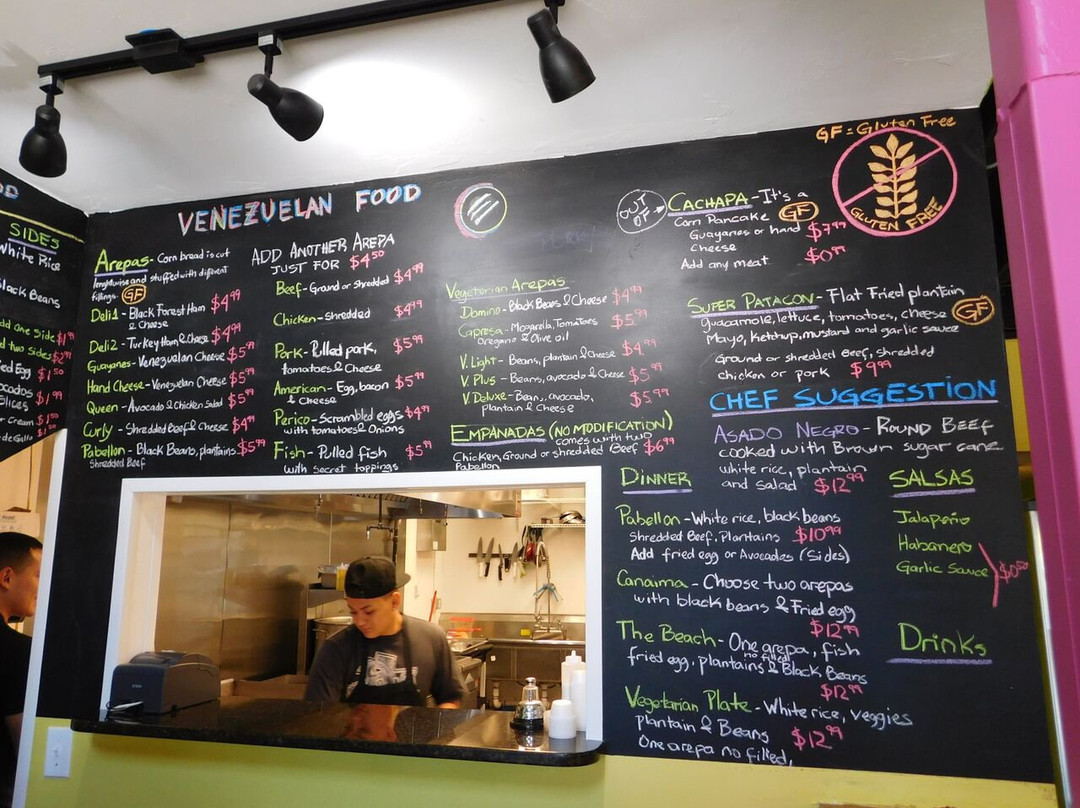 SIDES
White Rice
Black Beans
VENEZUELAN FOOD
Arepas - Corn bread is cut
lengthwise and stuffed with different
fillings. GF
Deli 1 - Black Forest Ham $4.99
& Cheese
Deli 2 - Turkey Ham & Cheese $4.99
Guayanes - Venezuelan Cheese $5.99
Hand Cheese - Venezuelan Cheese $5.99
Queen - Avocado & Chicken Salad $5.99
Curly - Shredded Beef & Cheese $4.99
Pabellon - Black Beans, plantains $5.99
Shredded Beef
ADD ANOTHER AREPA
JUST FOR $4.50
Beef - Ground or shredded $4.99
Chicken - shredded $4.99
Pork - Pulled pork, $5.99
tomatoes & Cheese
American - Egg, bacon $5.99
& Cheese
Perico - Scrambled eggs $4.99
with tomatoes & Onions
Fish - Pulled fish $5.99
with secret toppings
Vegetarian Arepas
Domino - Black Beans & Cheese $4.99
Capresa - Mozzarella, Tomatoes $5.99
oregano & Olive oil
V. Light - Beans, plantain & Cheese $4.99
V. Plus - Beans, avocado & Cheese $5.99
V. Deluxe - Beans, avocado, $5.99
plantain & Cheese
EMPANADAS (NO MODIFICATION)
comes with two
Chicken, Ground or shredded Beef $6.99
Pabellon
OUT OF
CACHAPA - It's a
Corn Pancake GF
Guayanes or hand $7.99
Cheese
Add any meat $0.99
GF = Gluten Free
GLUTEN FREE
SUPER PATACON - Flat Fried plantain
guacamole, lettuce, tomatoes, cheese GF
Mayo, ketchup, mustard and garlic sauce
Ground or shredded Beef, shredded
chicken or pork $9.99
CHEF SUGGESTION
ASADO NEGRO - ROUND BEEF
cooked with Brown sugar cane
white rice, plantain
and salad $12.99
DINNER
Pabellon - White rice, black beans
shredded Beef, Plantains $10.99
Add fried egg or Avocados (Sides)
Canaima - Choose two arepas
with black beans & Fried egg
$12.99
The Beach - One arepa, fish
no filled
fried egg, plantains & Black Beans
$12.99
Vegetarian Plate - White rice, veggies
plantain & Beans $12.99
One arepa no filled,
SALSAS
Jalapeño
Habanero
Garlic Sauce $0.50
Drinks